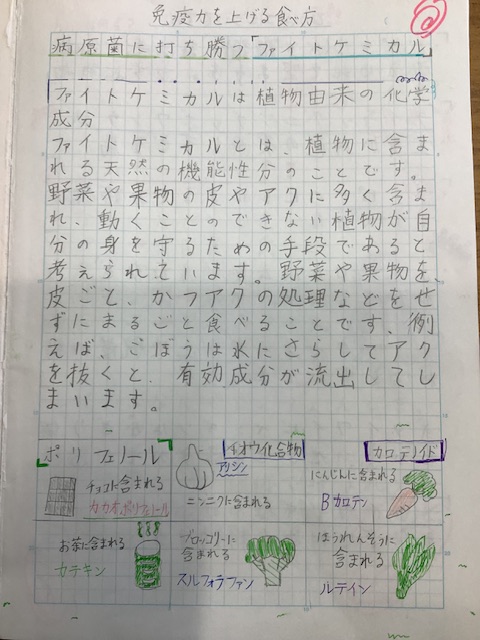 免疫力を上げる食べ方
病原菌に打ち勝つファイトケミカル
ファイトケミカルは植物由来の化学
成分
ファイトケミカルとは、植物に含ま
れる天然の機能性分のことです。
野菜や果物の皮やアクに多く含ま
れ、動くことのできない植物が自
分の身を守るための手段であると
考えられています。野菜や果物を、
皮ごと、かつアクの処理などをせ
ずにまるごと食べることです。例
えば、ごぼうは水にさらしてアク
を抜くと、有効成分が流出してし
まいます。
ポリフェノール
チョコに含まれる
カカオポリフェノール
お茶に含まれる
カテキン
イオウ化合物
アリシン
ニンニクに含まれる
ブロッコリーに
含まれる
スルフォラファン
カロテノイド
にんじんに含まれる
Bカロテン
ほうれんそうに
含まれる
ルテイン